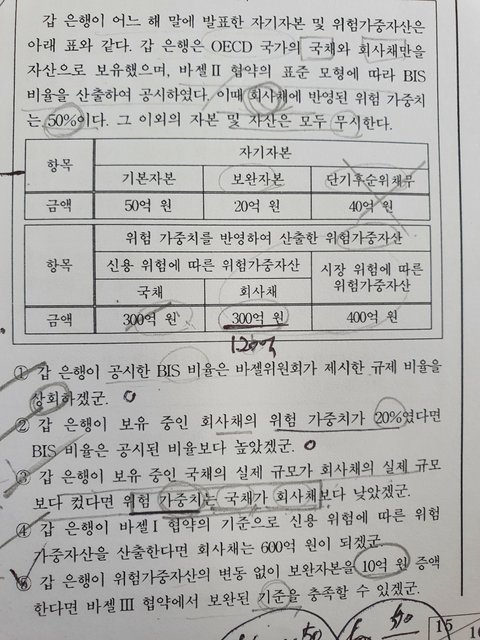 갑 은행이 어느 해 말에 발표한 자기자본 및 위험가중자산은
아래 표와 같다. 갑 은행은 OECD 국가의 국채와 회사채만을
자산으로 보유했으며, 바젤Ⅱ 협약의 표준 모형에 따라 BIS
비율을 산출하여 공시하였다. 이때 회사채에 반영된 위험 가중치
는 50%이다. 그 이외의 자본 및 자산은 모두 무시한다.
항목 자기자본
기본자본 보완자본 단기후순위채무
금액 50억 원 20억 원 40억 원
항목 위험 가중치를 반영하여 산출한 위험가중자산
신용 위험에 따른 위험가중자산 시장 위험에 따른
위험가중자산
국채 회사채
금액 300억 원 300억 원 400억 원
120억
① 갑 은행이 공시한 BIS 비율은 바젤위원회가 제시한 규제 비율을
상회하겠군.
② 갑 은행이 보유 중인 회사채의 위험 가중치가 20%였다면
BIS 비율은 공시된 비율보다 높았겠군.
③ 갑 은행이 보유 중인 국채의 실제 규모가 회사채의 실제 규모
보다 컸다면 위험 가중치는 국채가 회사채보다 낮았겠군.
④ 갑 은행이 바젤Ⅰ 협약의 기준으로 신용 위험에 따른 위험
가중자산을 산출한다면 회사채는 600억 원이 되겠군.
⑤ 갑 은행이 위험가중자산의 변동 없이 보완자본을 10억 원 증액
한다면 바젤Ⅲ 협약에서 보완된 기준을 충족할 수 있겠군.
15